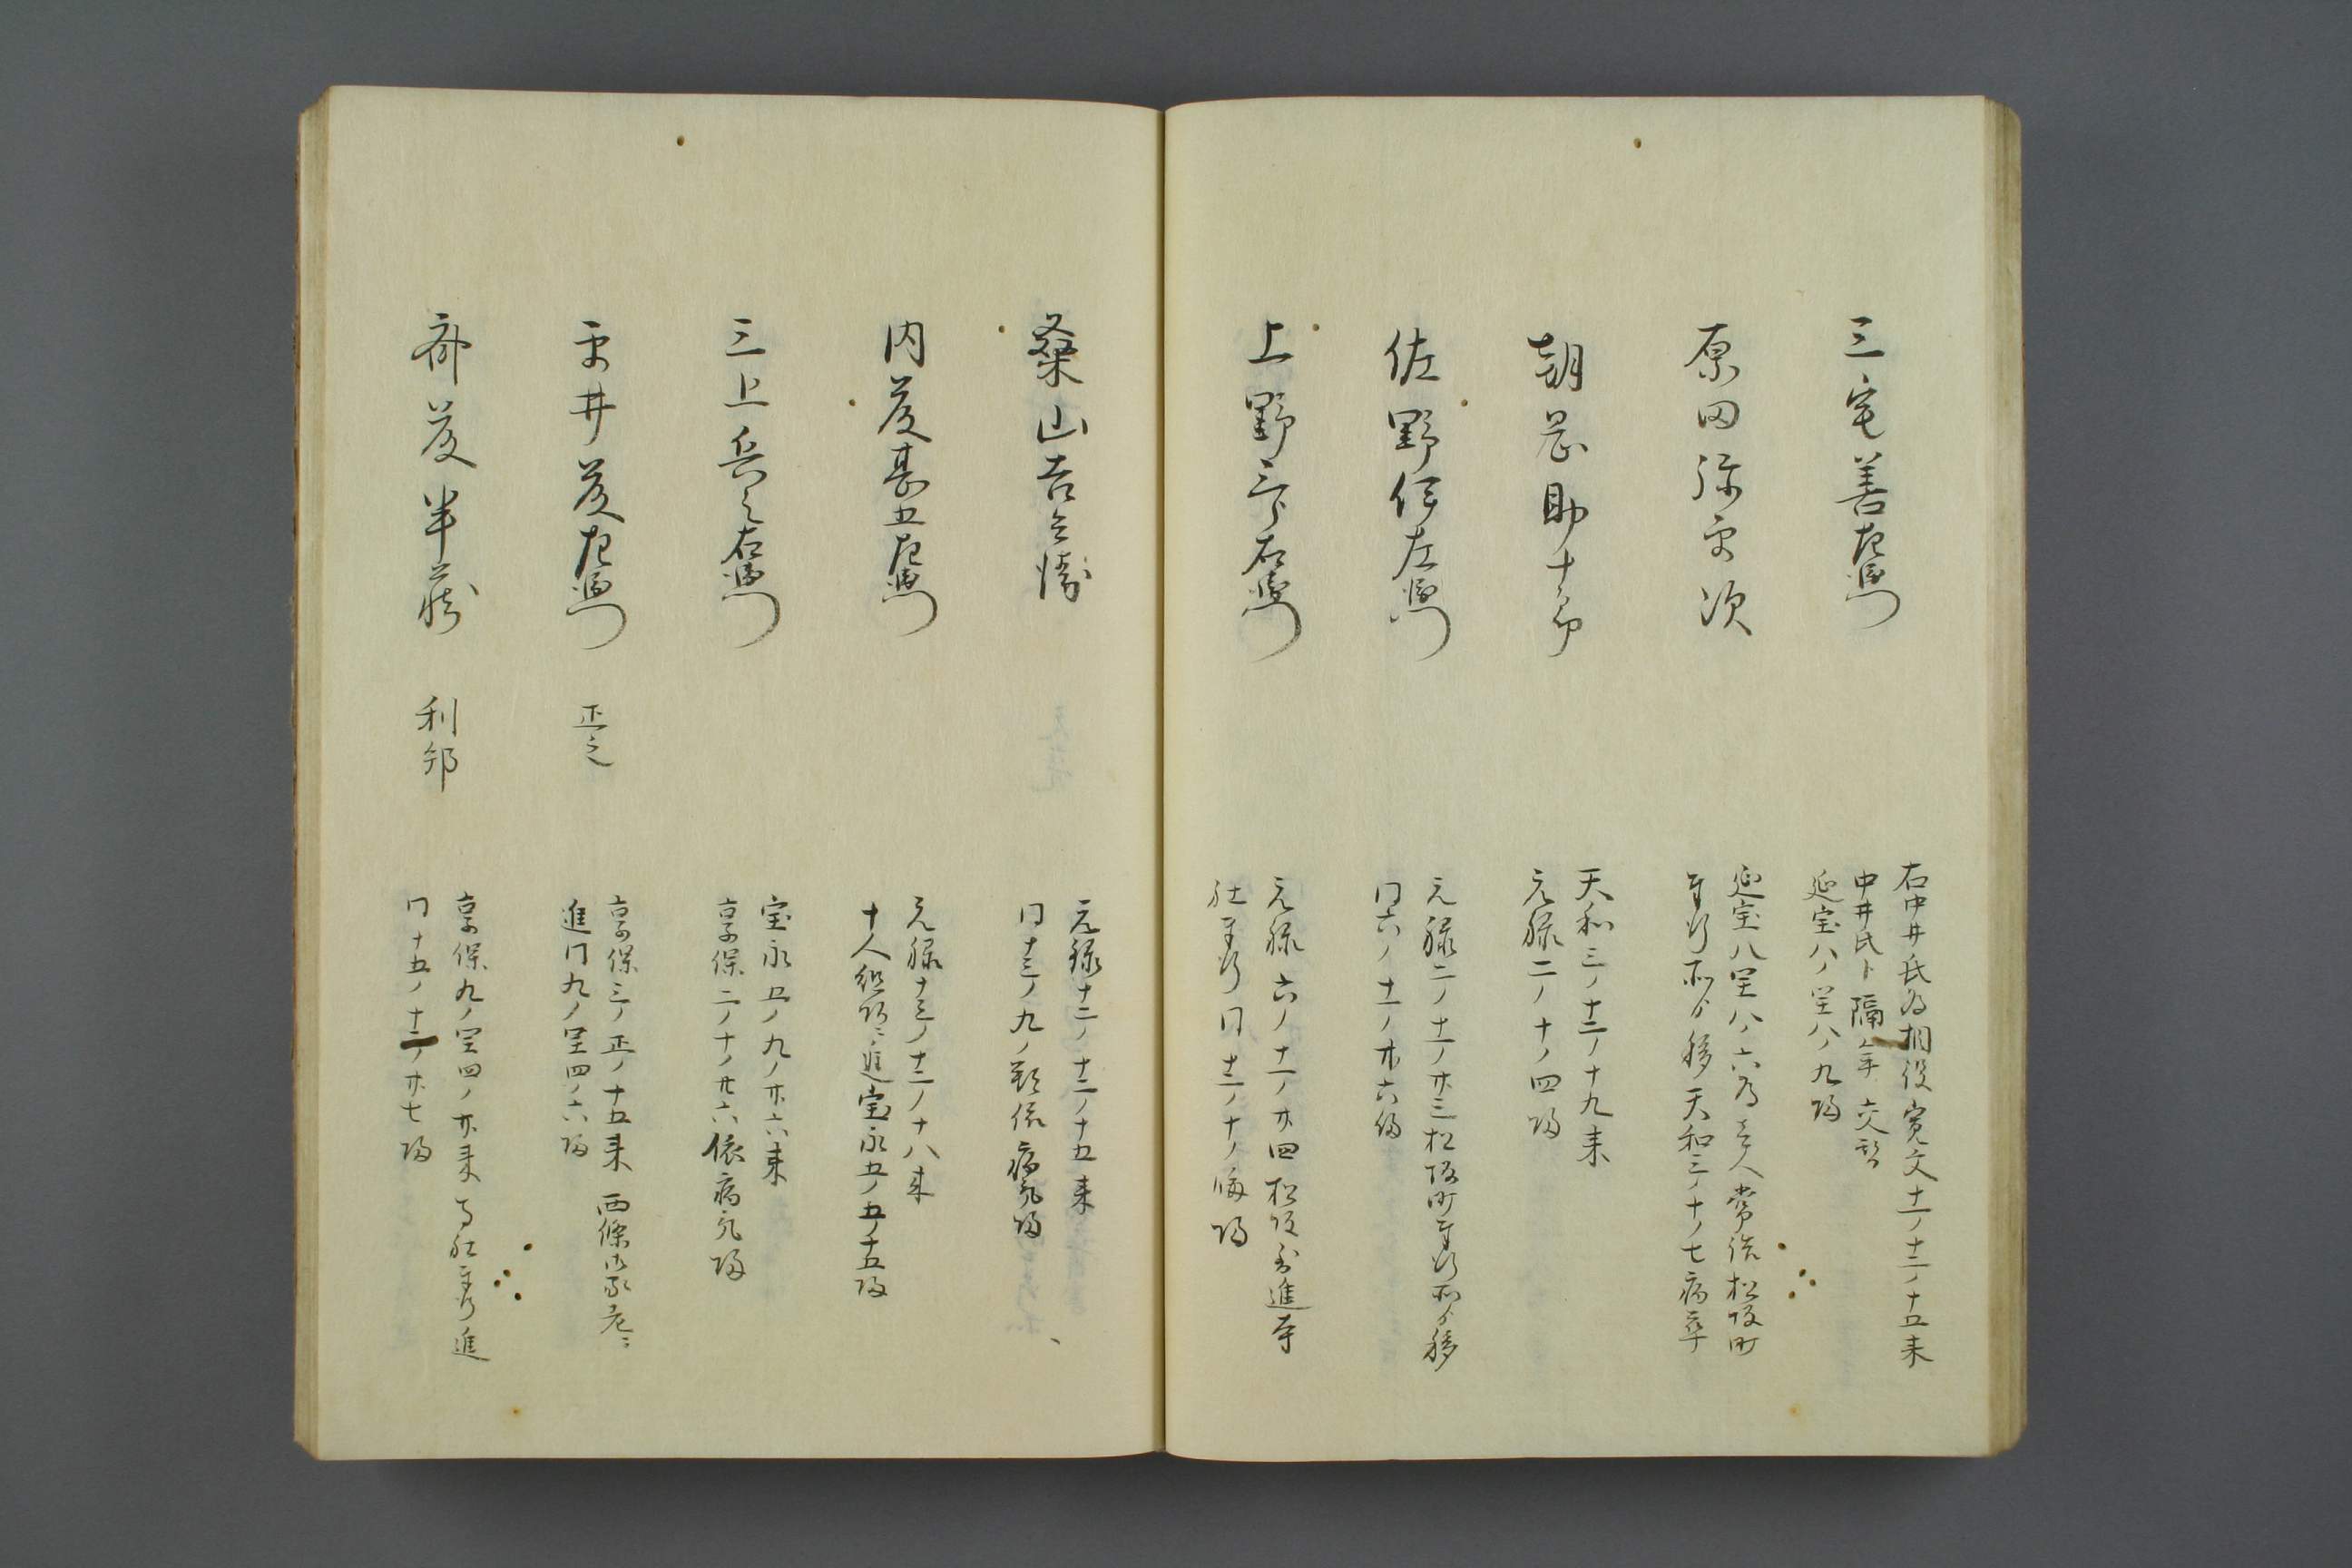 三宅善左衛門
右中井氏為相役寛文十一ノ十二ノ十五来
中井氏ト隔年交替
延宝八ノ閏八ノ九帰
原田弥市次
延宝八閏八ノ六為壱人常詰松坂町
奉行所ゟ移天和三ノ十ノ七病卒
朝岡助十郎
天和三ノ十二ノ十九来
元禄二ノ十ノ四帰
佐野伊左衛門
元禄二ノ十一ノ廿三松坂町奉行所ゟ移
同六ノ十一ノ廿六帰
上野三郎右衛門
元禄六ノ十一ノ廿四松坂ゟ進寺
社奉行同十二ノ十ノ晦帰
桑山吉兵衛
元禄十二ノ十二ノ十五来
同十三ノ九ノ朔依病気帰
内藤甚五左衛門
元禄十三ノ十二ノ十八来
十人組頭ニ進宝永五ノ五ノ十五帰
三上兵之右衛門
宝永五ノ九ノ廿六来
享保二ノ十ノ廿六依病気帰
平井藤左衛門 正之
享保三ノ正ノ十五来 西條御家老ニ
進同九ノ閏四ノ六帰
斎藤半蔵 利邦
享保九ノ閏四ノ廿来寺社奉行進
同十五ノ十二ノ廿七帰